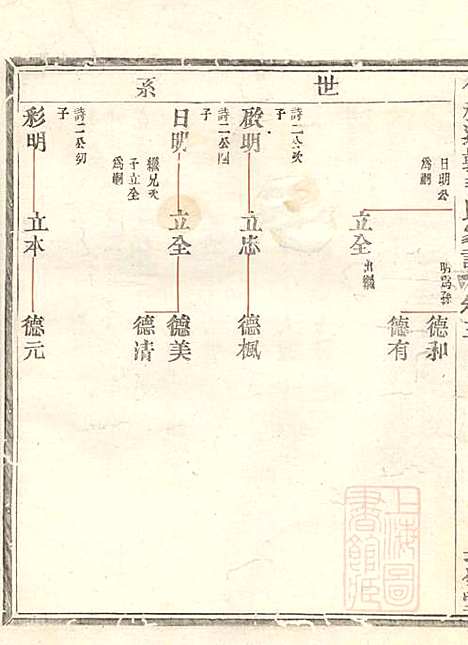 世系
德和
德有
日明公
為嗣
明為孫
立全
出繼
啟明
詩二公次
子
立忠
德楓
日明
詩二公四
子
繼兄次
子立全
為嗣
立全
德美
德清
彩明
詩二公幼
子
立本
德元
上海圖
書館藏